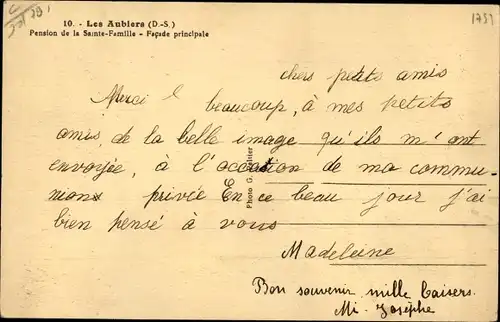 10. - Les Aubiers (D.-S.)
Pension de la Sainte-Famille - Façade principale
1751
chers petits amis
Merci beaucoup, à mes petits
amis, de la belle image qu'ils m'ont
envoyée, à l'occation de ma commu-
nion privée En ce beau jour j'ai
bien pensé à vous
Madeleine
Bon souvenir mille baisers.
Mi-Josèphe
Photo G.